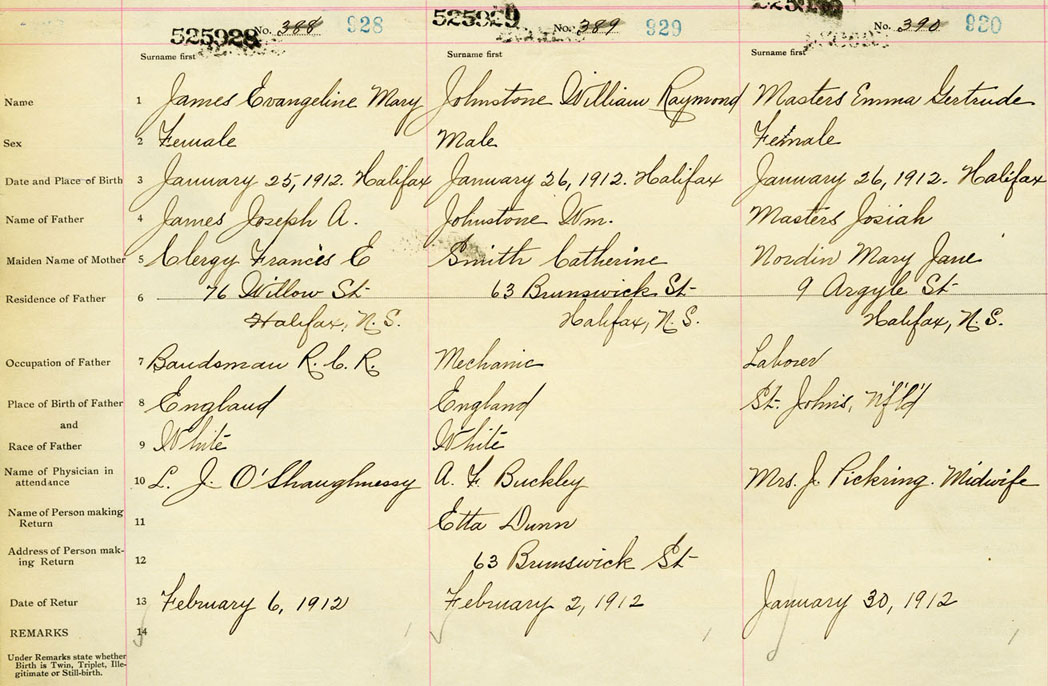 525928 No. 388 928 525929 No. 389 929 No. 390 930
Surname first Surname first Surname first
Name 1 James Evangeline Mary Johnstone William Raymond Masters Emma Gertrude
Sex 2 Female Male Female
Date and Place of Birth 3 January 25, 1912. Halifax January 26, 1912. Halifax January 26, 1912. Halifax
Name of Father 4 James Joseph A. Johnstone Wm. Masters Josiah
Maiden Name of Mother 5 Clergy Francis E Smith Catherine Nordin Mary Jane
Residence of Father 6 76 Willow St 63 Brunswick St 9 Argyle St
Halifax, N.S. Halifax, N.S. Halifax, N.S.
Occupation of Father 7 Bandsman R.C.R. Mechanic Laborer
Place of Birth of Father 8 England England St. John's, N'f'l'd
and
Race of Father 9 White White
Name of Physician in
attendance 10 L. J. O'Shaughnessy A. F. Buckley Mrs. J. Pickring. Midwife
Name of Person making
Return 11 Etta Dunn
Address of Person mak-
ing Return 12 63 Brunswick St
Date of Retur 13 February 6, 1912 February 2, 1912 January 30, 1912
REMARKS 14
Under Remarks state whether
Birth is Twin, Triplet, Ille-
gitimate or Still-birth.